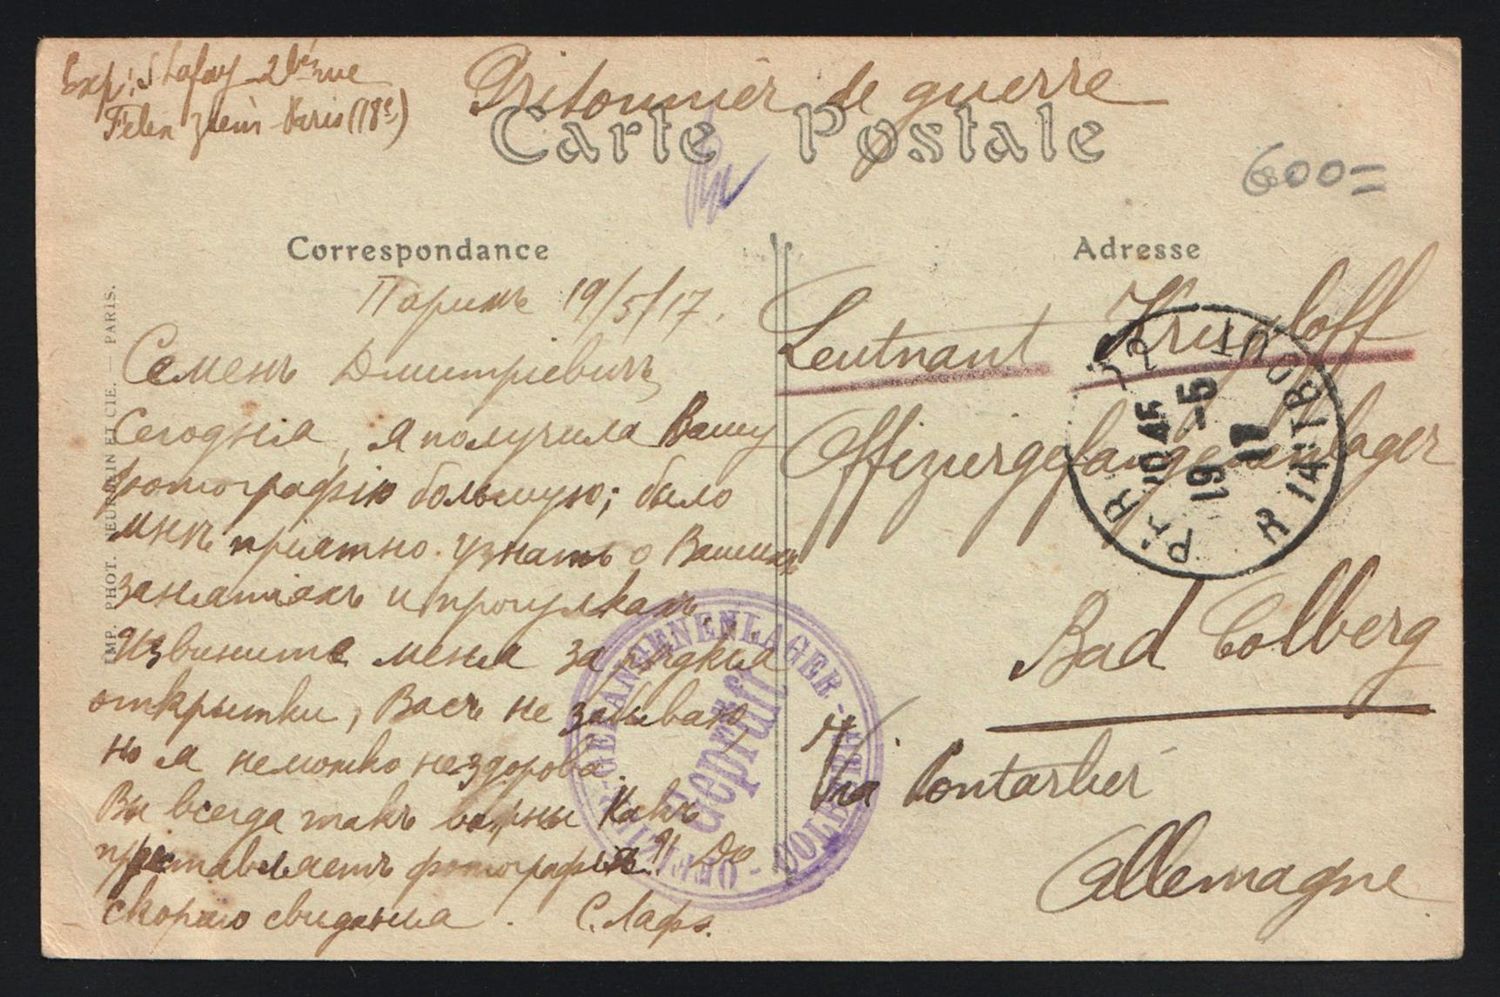 Exp: S Lafay 2bis rue
Felix Ziem Paris (18e)
Prisonnier de guerre
Carte Postale
600=
Correspondance
Adresse
Парижъ 19/5/17.
Семенъ Дмитріевичъ,
Сегодня, я получила Вашу
фотографію большую; было
мнѣ пріятно узнать о Вашихъ
занятіяхъ и прогулкахъ
Извините меня за рѣдкія
открытки, Васъ не забываю,
но я немножко нездорова.
Вы всегда такъ важны какъ
представляетъ фотографія? До
скораго свиданья. С. Лафэ.
Leutnant Krugloff
Offiziergefangenenlager
Bad Colberg
Via Pontarlier
Allemagne
PARIS
10 45
19 -5
17
OFFIZIER-GEFANGENENLAGER - COLBERG
Geprüft
IMP. PHOT. NEURDIN ET CIE. — PARIS.